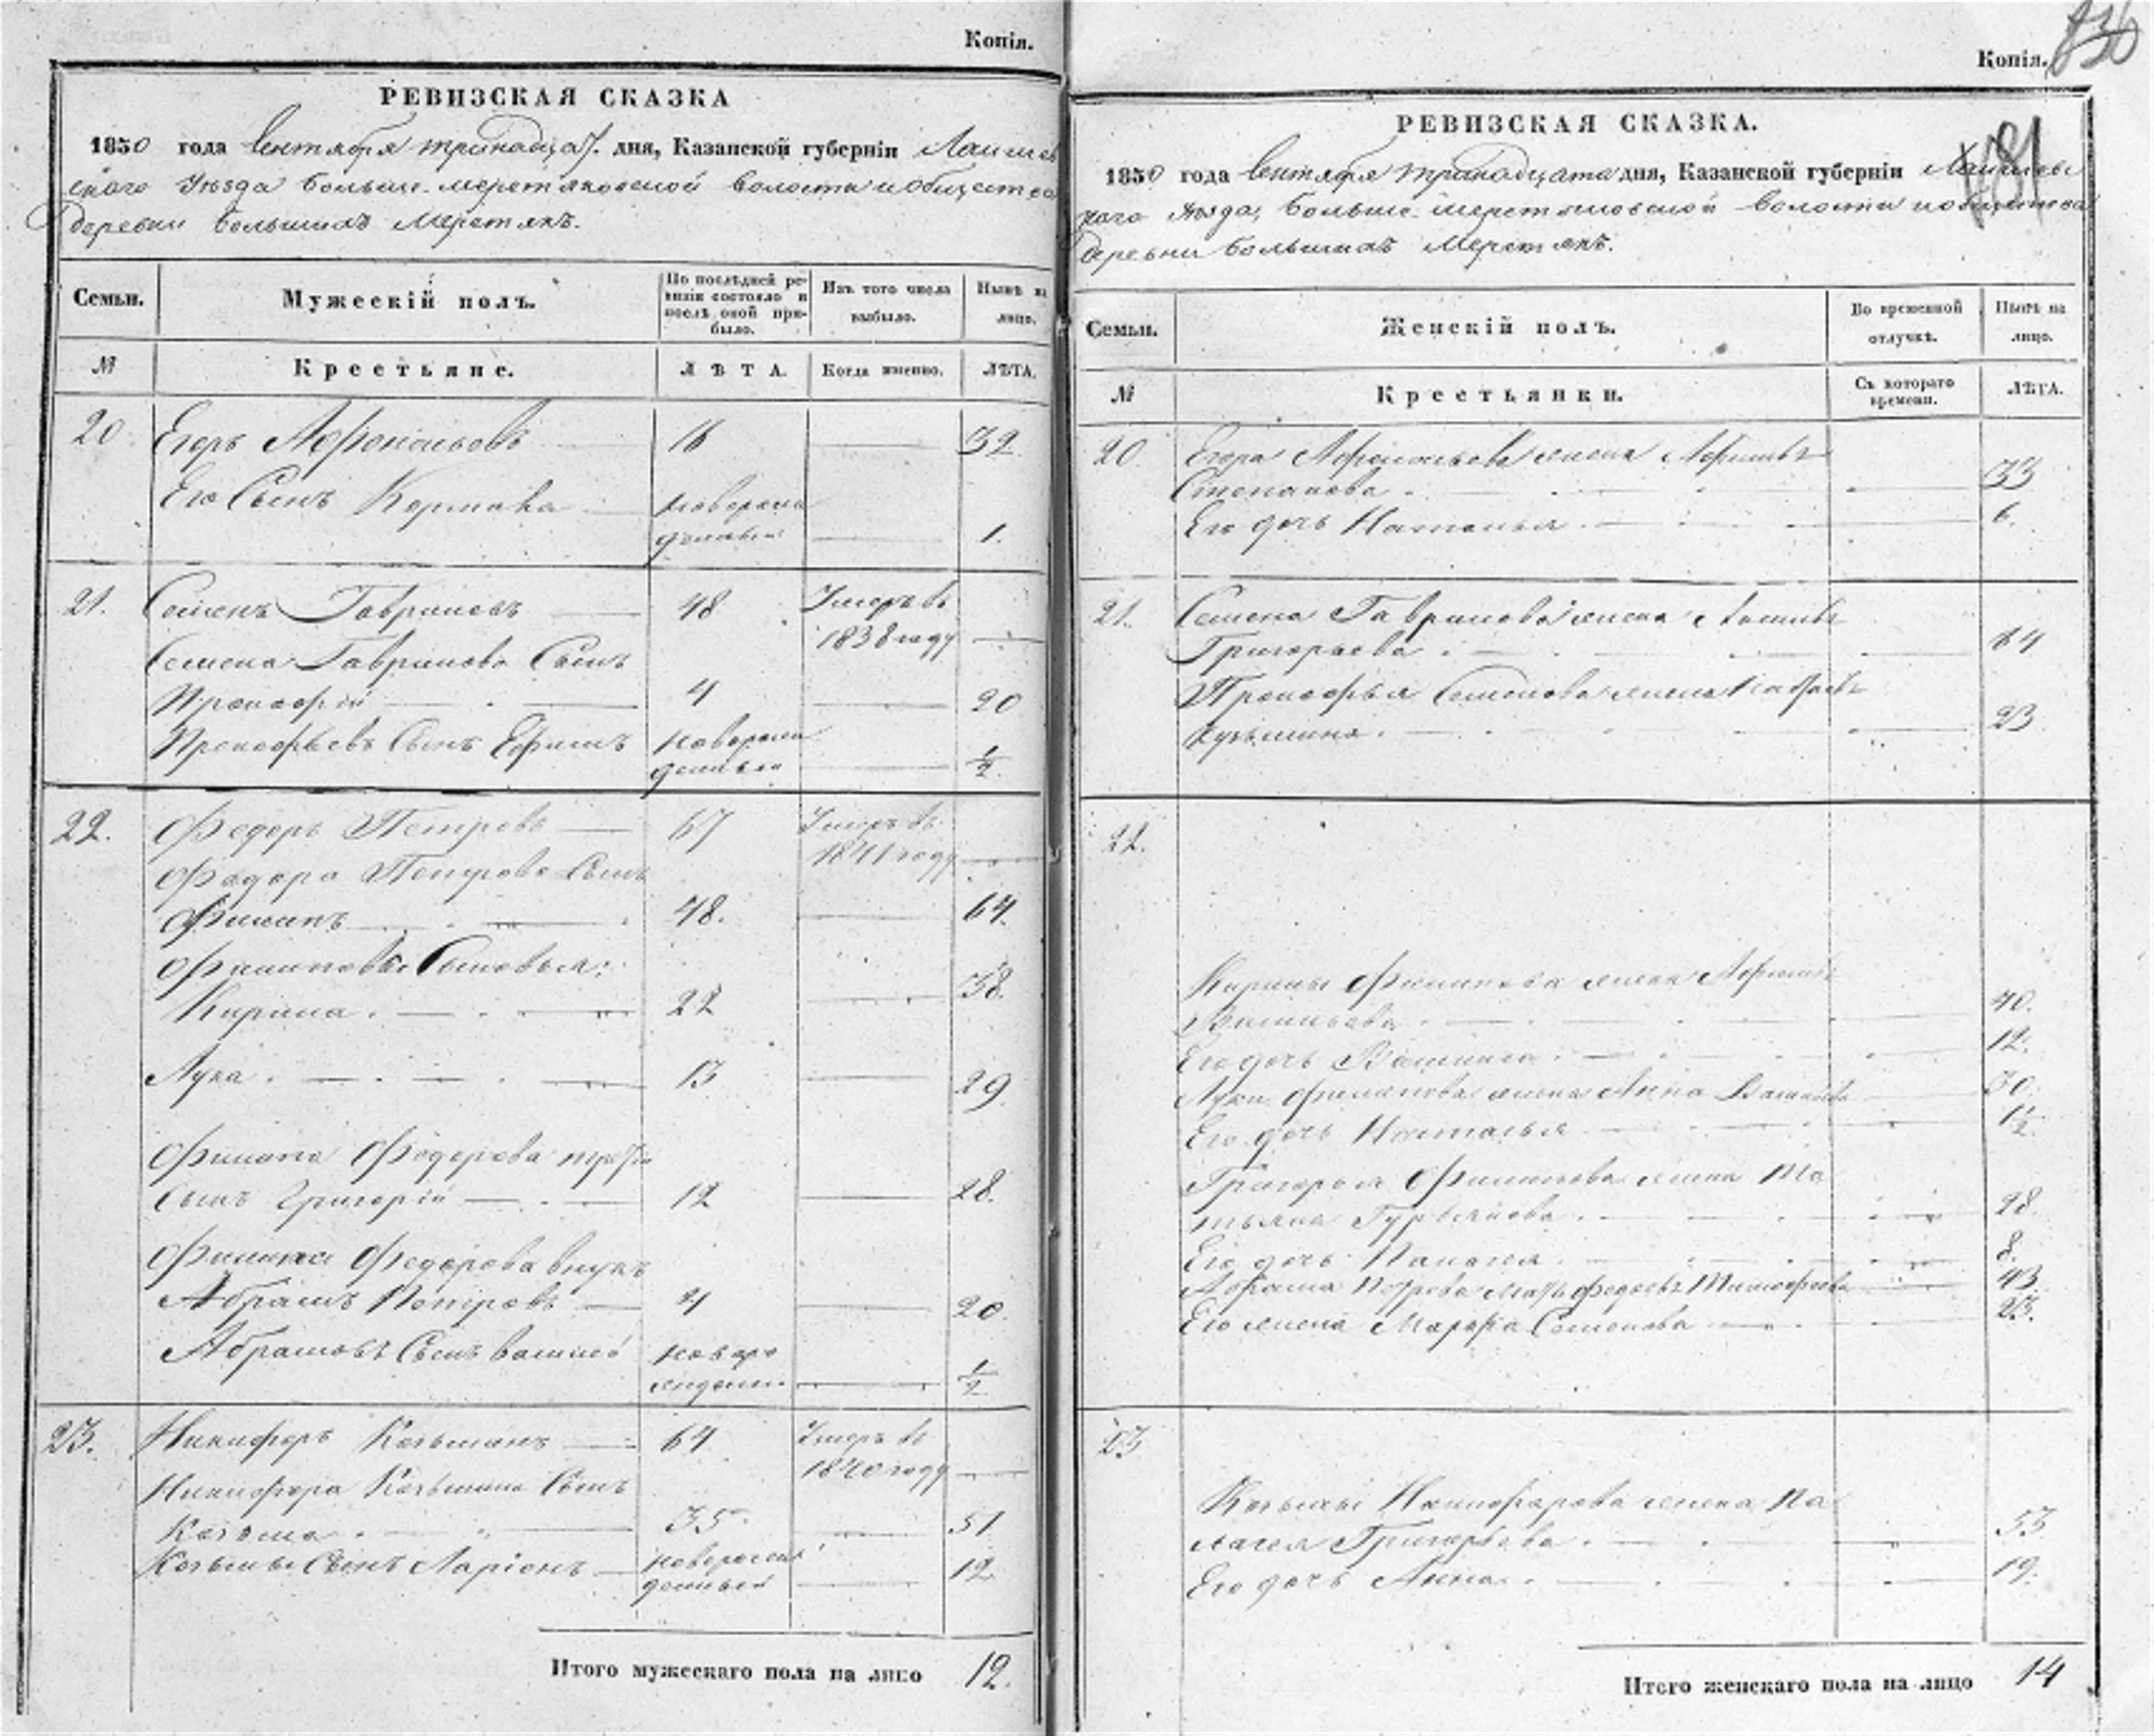 Копія.
РЕВИЗСКАЯ СКАЗКА
1850 года Сентября тринадцат. дня, Казанской губерніи Лаишев
скаго Уѣзда Больше-меретяковской волости и общества
деревни Большихъ Меретякъ.
Семьи. Мужескій полъ. По послѣдней ревизіи состояло и послѣ оной прибыло. Изъ того числа выбыло. Нынѣ на лицо.
№ Крестьяне. ЛѢТА. Когда именно. ЛѢТА.
20 Егоръ Афонасьевъ 16 32
Его Сынъ новорож
денный 1.
21. Семенъ Гавриловъ 48 Умеръ въ
1838 году
Семена Гаврилова Сынъ
Прокофій 4 20
Прокофьевъ Сынъ Ефимъ новорож
денный 1/2
22. Федоръ Петровъ 67 Умеръ въ
1841 году
Федора Петрова Сынъ
Филипъ 48. 64.
Филиповы Сыновья:
Кирила 22 38.
Лука 13 29
Филипа Федорова трет.
Сынъ Григорій 12 28.
Филипа Федорова внукъ
Абрамъ Петровъ 4 20.
Абрамовъ Сынъ Василій новоро
жденный 1/2
23. Никифоръ Козьминъ 64 Умеръ въ
1840 году
Никифора Козьмина Сынъ
Козьма 35 51
Козьмы Сынъ Ларіонъ новорож
денный 12
Итого мужескаго пола на лицо 12.
Копія.
836
181
РЕВИЗСКАЯ СКАЗКА.
1850 года Сентября тринадцата дня, Казанской губерніи Лаишевс
каго Уѣзда, Больше-меретяковской волости и общества
деревни Большихъ Меретякъ.
Семьи. Женскій полъ. Во временной отлучкѣ. Нынѣ на лицо.
№ Крестьянки. Съ котораго времени. ЛѢТА.
20. Егора Афонасьева жена
Степанова 33
Его дочь Наталья 6.
21. Семена Гаврилова жена
Григорьева 64
Прокофья Семенова жена
Кузьмина 23
22.
Кирилы Филипова жена
Васильева 40.
Его дочь 12.
Луки Филипова жена Анна Васильева 30.
Его дочь Наталья 1/2
Григорья Филипова жена Та
тьяна Гурьянова 28.
Его дочь Палагея 8.
Абрама Петрова мать Федосья Тимофеева 43.
Его жена Марфа Семенова 23.
23
Козьмы Никифорова жена Па
лагея Григорьева 53
Его дочь Анна 19.
Итого женскаго пола на лицо 14